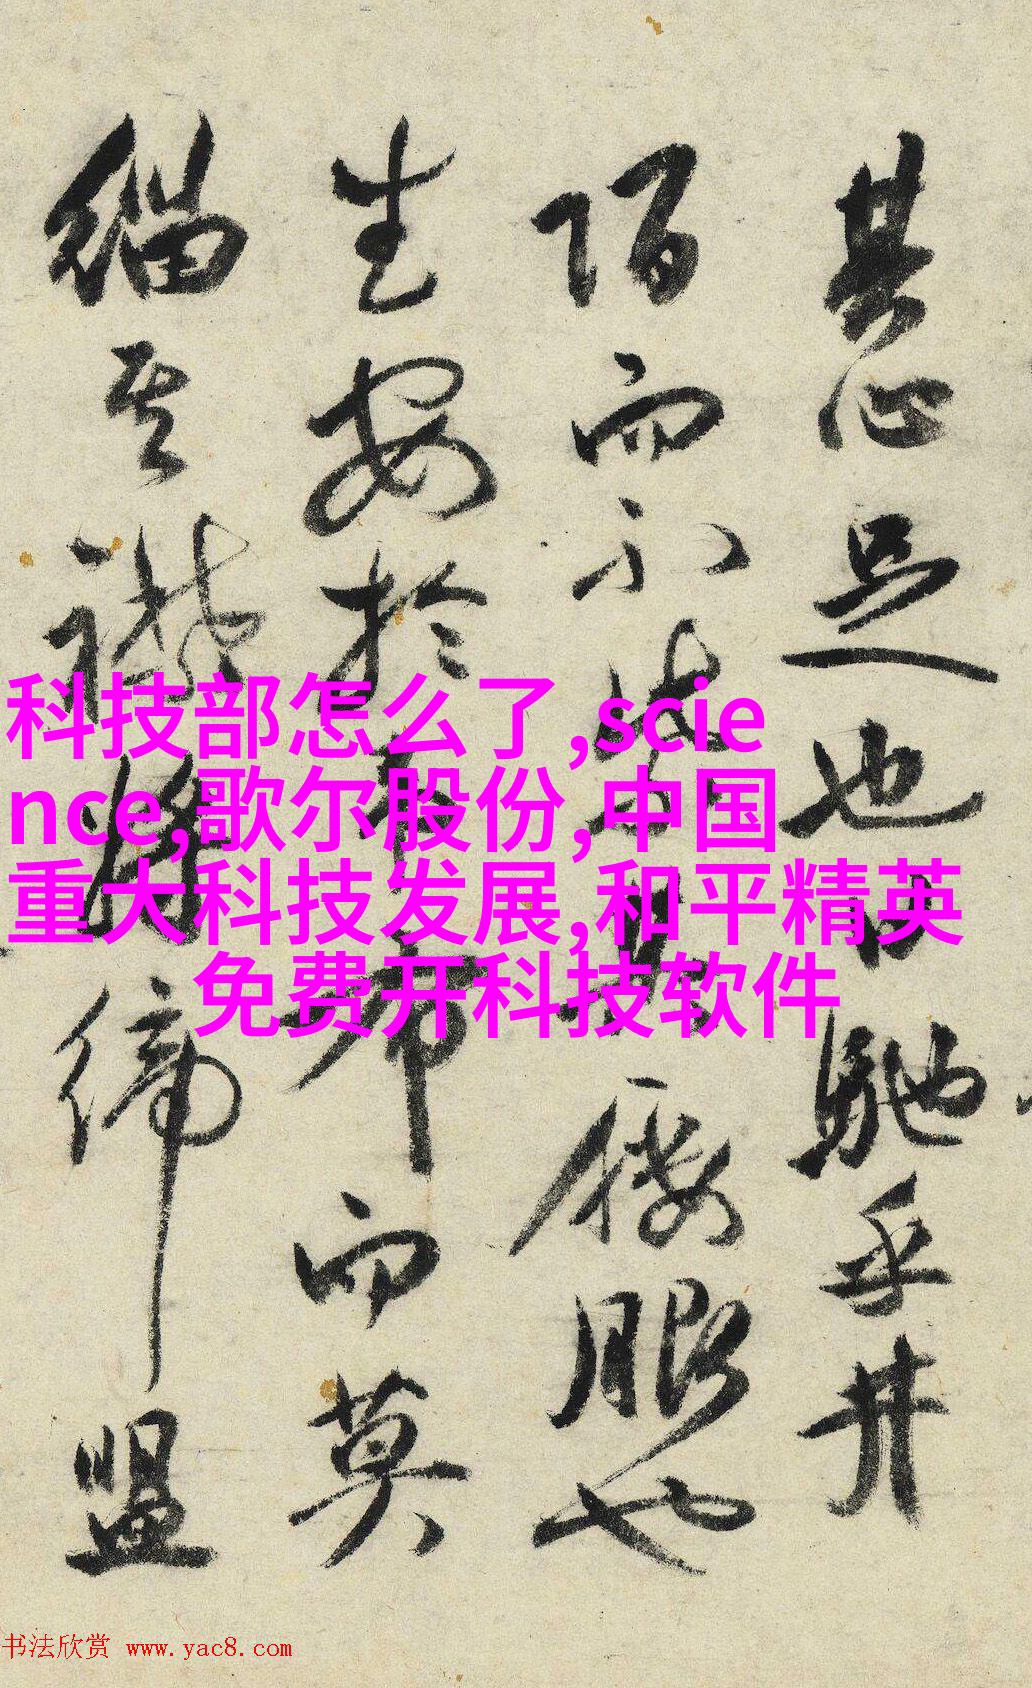 其心足也馳乎井
陌而不其也
生安於布而莫
其締盟
科技部怎么了,scie
nce,歌尔股份,中国
重大科技发展,和平精英
免费开科技软件
书法欣赏 www.yac8.com